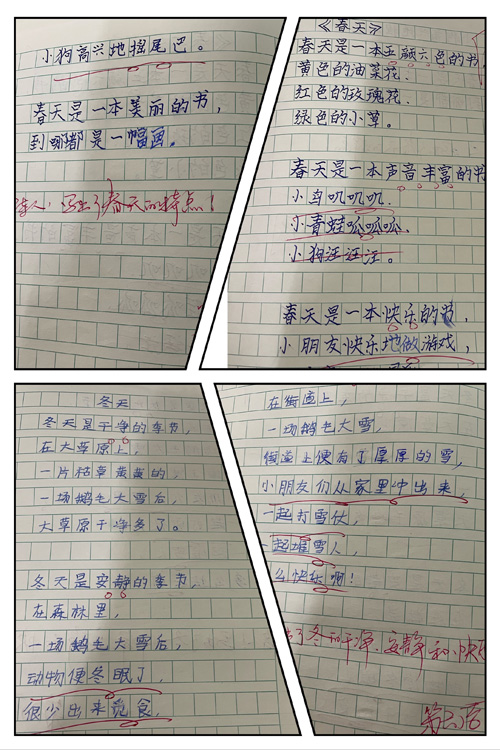 小狗高兴地摇尾巴。
春天是一本美丽的书,
到哪都是一幅画。
人!写出了春天的特点!
《春天》
春天是一本五颜六色的书,
黄色的油菜花.
红色的玫瑰花.
绿色的小草。
春天是一本声音丰富的书
小鸟叽叽叽.
小青蛙呱呱呱.
小狗汪汪汪。
春天是一本快乐的书,
小朋友快乐地做游戏,
冬天
冬天是干净的季节,
在大草原上,
一片枯草黄黄的,
一场鹅毛大雪后,
大草原干净多了。
冬天是安静的季节,
在森林里,
一场鹅毛大雪后,
动物便冬眠了,
很少出来觅食,
在街道上,
一场鹅毛大雪,
街道上便有了厚厚的雪,
小朋友们从家里冲出来,
一起打雪仗,
一起堆雪人,
么快乐啊!
了冬的干净、安静和快